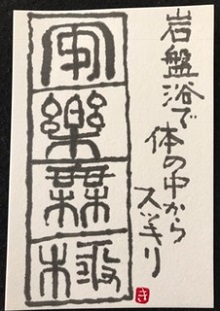 岩盤浴で
体の中から
スッキリ
き
安樂無極